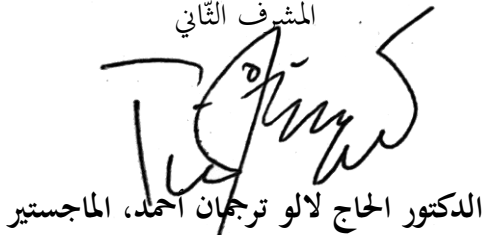 المشرف الثّاني
الدكتور الحاج لالو ترجمان أحمد، الماجستير